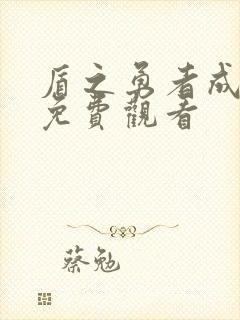 盾之勇者成
免費觀看
蔡勉